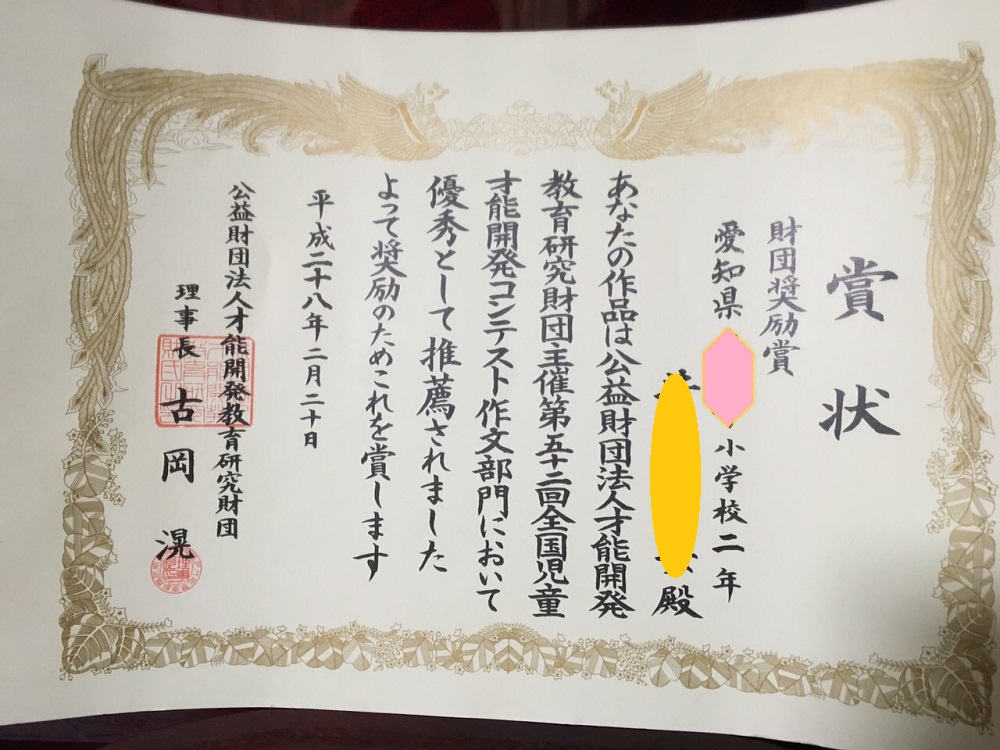 賞状
財団奨励賞
愛知県
小学校二年
殿
あなたの作品は公益財団法人才能開発
教育研究財団主催第五十二回全国児童
才能開発コンテスト作文部門において
優秀として推薦されました
よって奨励のためこれを賞します
平成二十八年二月二十日
公益財団法人才能開発教育研究財団
理事長 古岡 滉